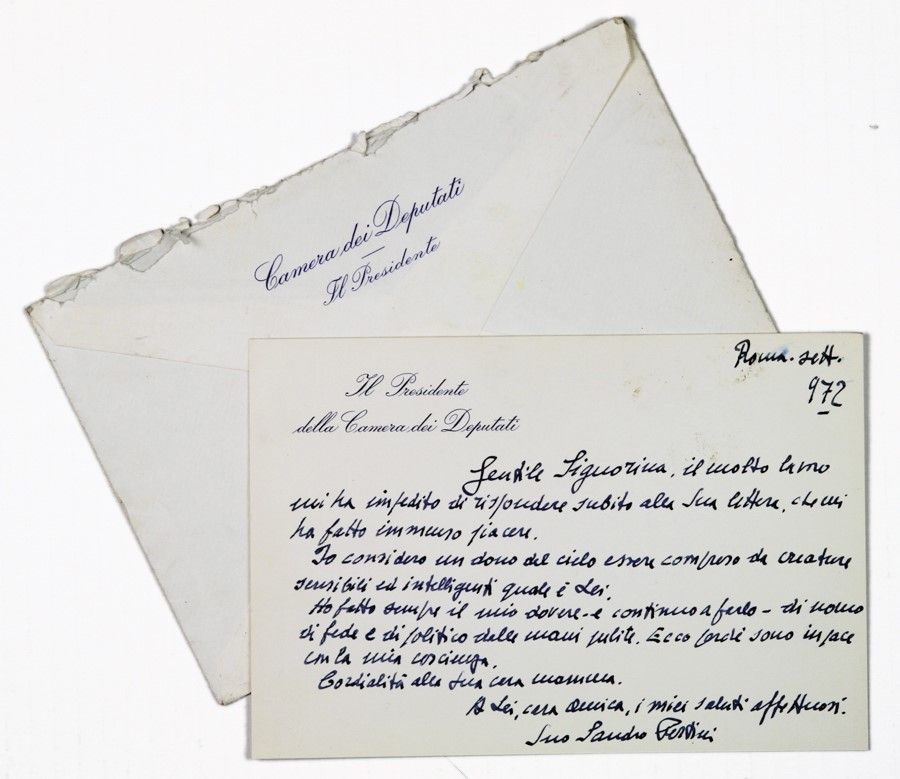 Camera dei Deputati
Il Presidente
Il Presidente
della Camera dei Deputati
Roma. sett.
972
Gentile Signorina, il molto lavoro
mi ha impedito di rispondere subito alla Sua lettera, che mi
ha fatto immenso piacere.
Io considero un dono del cielo essere compreso da creature
sensibili ed intelligenti quale è Lei.
Ho fatto sempre il mio dovere - e continuo a farlo - di uomo
di fede e di politico dalle mani pulite. Ecco perché sono in pace
con la mia coscienza.
Cordialità alla Sua cara mamma.
A Lei, cara Amica, i miei saluti affettuosi.
Suo Sandro Pertini